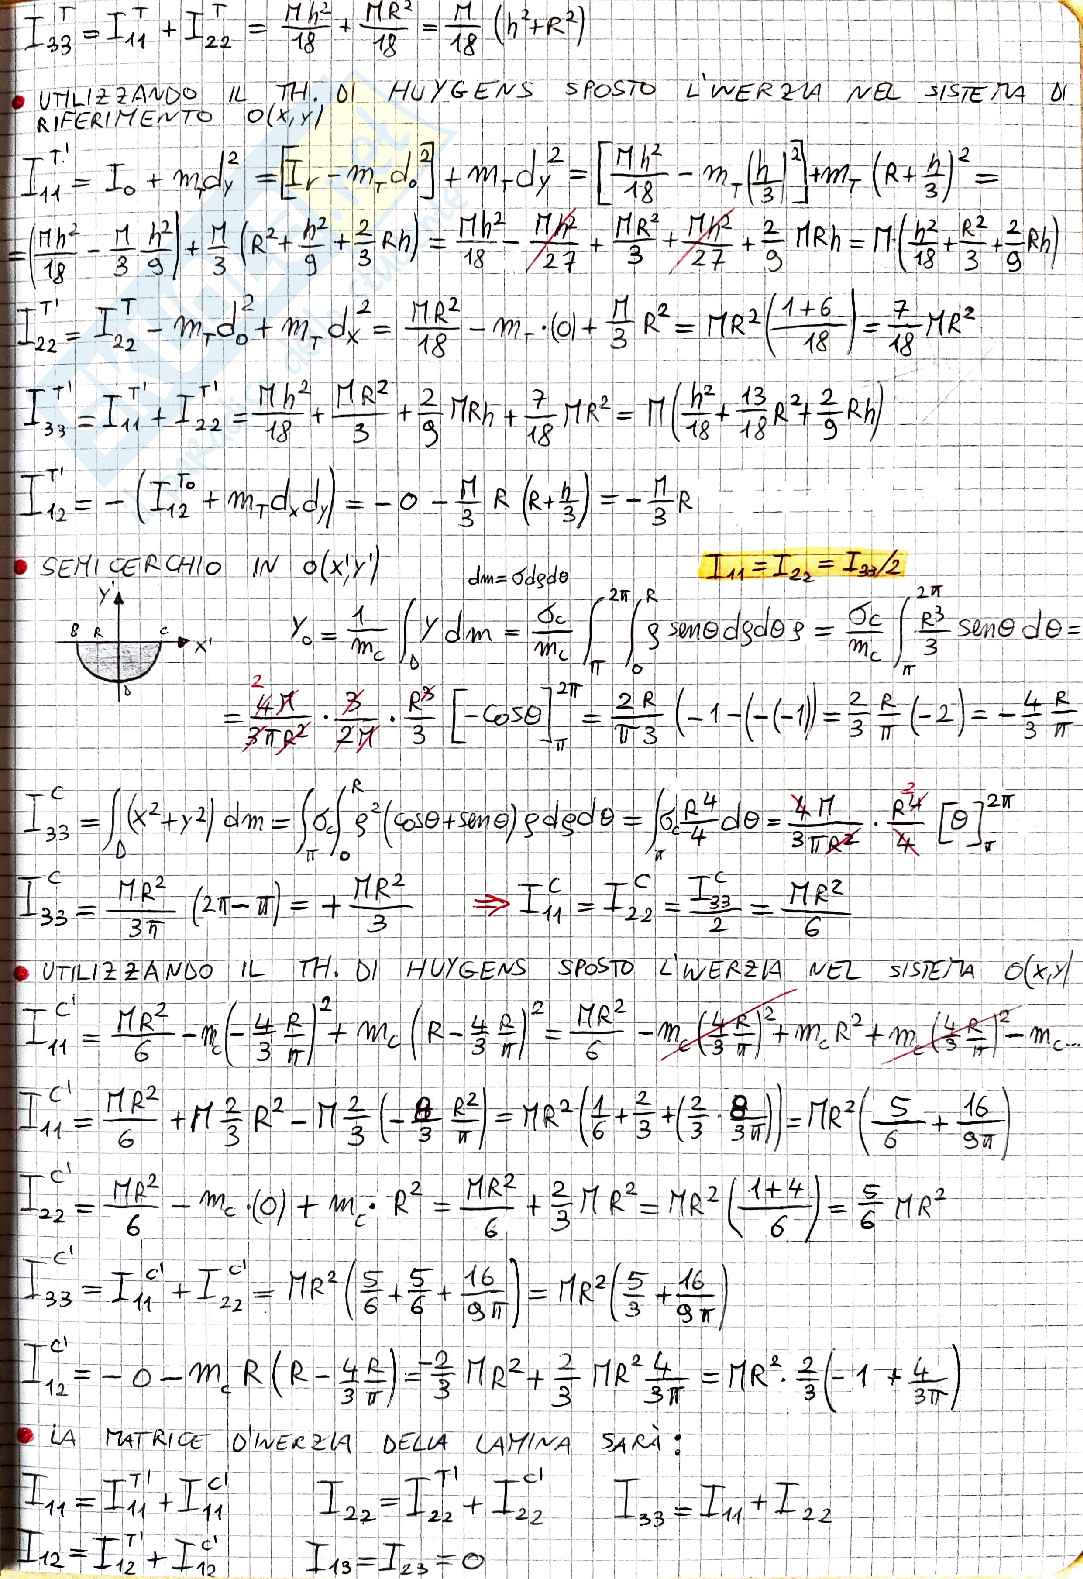 I₃₃ᵀ = I₁₁ᵀ + I₂₂ᵀ = Mh²/18 + MR²/18 = M/18 (h²+R²)
• UTILIZZANDO IL TH. DI HUYGENS SPOSTO L'INERZIA NEL SISTEMA DI
RIFERIMENTO O(X,Y)
I₁₁ᵀ' = I₀ + m_T d_y² = [I_r − m_T d₀²] + m_T d_y² = [Mh²/18 − m_T (h/3)²] + m_T (R + h/3)² =
= (Mh²/18 − M/3 h²/9) + M/3 (R² + h²/9 + 2/3 Rh) = Mh²/18 − Mh²/27 + MR²/3 + Mh²/27 + 2/9 MRh = M·(h²/18 + R²/3 + 2/9 Rh)
I₂₂ᵀ' = I₂₂ᵀ − m_T d₀² + m_T d_x² = MR²/18 − m_T·(0) + M/3 R² = MR² (1+6/18) = 7/18 MR²
I₃₃ᵀ' = I₁₁ᵀ' + I₂₂ᵀ' = Mh²/18 + MR²/3 + 2/9 MRh + 7/18 MR² = M (h²/18 + 13/18 R² + 2/9 Rh)
I₁₂ᵀ' = −(I₁₂ᵀ⁰ + m_T d_x d_y) = −0 − M/3 R (R + h/3) = −M/3 R
• SEMICERCHIO IN O(X'Y') dm = σdρdθ I₁₁ = I₂₂ = I₃₃/2
Y' B R C X' D
Y₀ = 1/m_c ∫_D y dm = σ_c/m_c ∫_π^2π ∫_0^R ρ senθ dρdθ ρ = σ_c/m_c ∫_π^2π R³/3 senθ dθ =
= 2 4M/3πR² · 3/2M · R³/3 [−cosθ]_π^2π = 2R/π3 (−1−(−(−1)) = 2/3 R/π (−2) = −4/3 R/π
I₃₃ᶜ = ∫_D (x²+y²) dm = ∫_π σ_c ∫_0^R ρ² (cosθ+senθ) ρ dρdθ = ∫_π σ_c R⁴/4 dθ = 4M/3πR² · R⁴/4 2 [θ]_π^2π
I₃₃ᶜ = MR²/3π (2π−π) = + MR²/3 ⇒ I₁₁ᶜ = I₂₂ᶜ = I₃₃ᶜ/2 = MR²/6
• UTILIZZANDO IL TH. DI HUYGENS SPOSTO L'INERZIA NEL SISTEMA O(X,Y)
I₁₁ᶜ' = MR²/6 − m_c (−4/3 R/π)² + m_c (R − 4/3 R/π)² = MR²/6 − m_c (4/3 R/π)² + m_c R² + m_c (4/3 R/π)² − m_c...
I₁₁ᶜ' = MR²/6 + M 2/3 R² − M 2/3 (−8/3 R²/π) = MR² (1/6 + 2/3 + (2/3 · 8/3π)) = MR² (5/6 + 16/9π)
I₂₂ᶜ' = MR²/6 − m_c·(0) + m_c· R² = MR²/6 + 2/3 MR² = MR² (1+4/6) = 5/6 MR²
I₃₃ᶜ' = I₁₁ᶜ' + I₂₂ᶜ' = MR² (5/6 + 5/6 + 16/9π) = MR² (5/3 + 16/9π)
I₁₂ᶜ' = −0 − m_c R (R − 4/3 R/π) = −2/3 MR² + 2/3 MR² 4/3π = MR² · 2/3 (−1 + 4/3π)
• LA MATRICE D'INERZIA DELLA LAMINA SARÀ:
I₁₁ = I₁₁ᵀ' + I₁₁ᶜ' I₂₂ = I₂₂ᵀ' + I₂₂ᶜ' I₃₃ = I₁₁ + I₂₂
I₁₂ = I₁₂ᵀ' + I₁₂ᶜ' I₁₃ = I₂₃ = 0